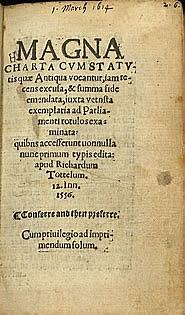 1. March 1614
2. 6.
MAGNA
CHARTA CVM STATV-
tis quæ Antiqua vocantur, iam re-
cens excusa, & summa fide
emendata, iuxta vetusta
exemplaria ad Parlia-
menti rotulos exa-
minata:
quibus accesserunt nonnulla
nunc primum typis edita:
apud Richardum
Tottelum.
12. Iun.
1556.
Conferre and then preferre.
Cum priuilegio ad impri-
mendum solum.